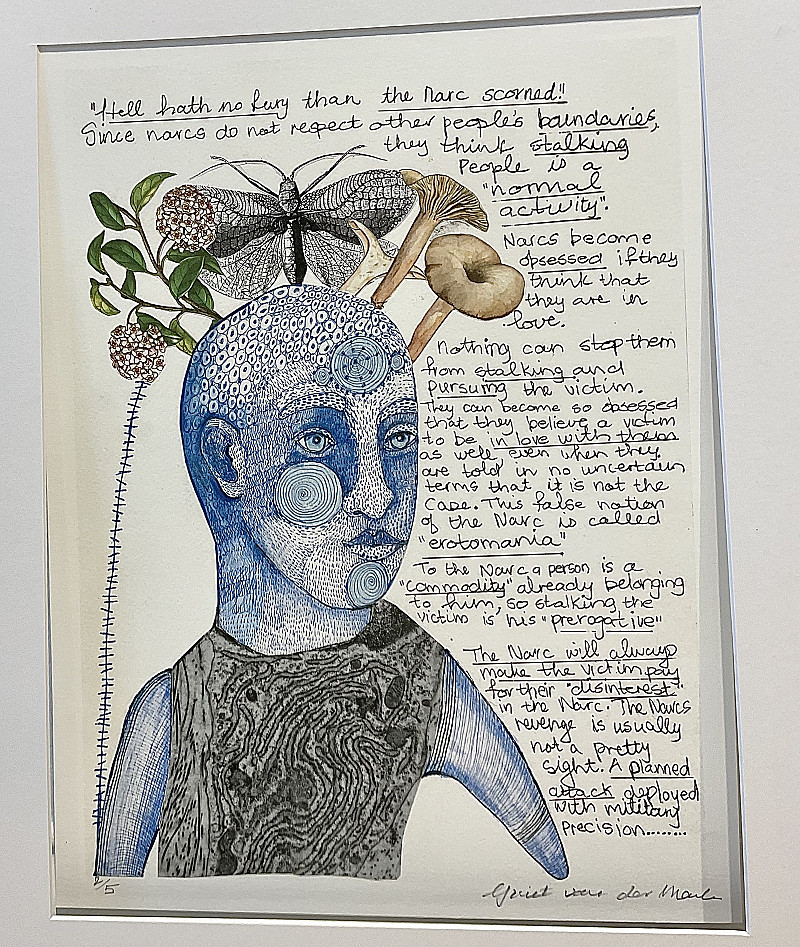 "Hell hath no fury than the Narc scorned!!
Since narcs do not respect other people's boundaries,
they think stalking
People is a
"normal
activity".
Narcs become
obsessed if they
think that
they are in
love.
Nothing can stop them
from stalking and
pursuing the victim.
They can become so obsessed
that they believe a victim
to be in love with them
as well even when they
are told in no uncertain
terms that it is not the
case. This false notion
of the Narc is called
"erotomania"
To the Narc a person is a
"commodity" already belonging
to him, so stalking the
victim is his "prerogative"
The Narc will always
make the victim pay
for their "disinterest"
in the Narc. The Narcs
revenge is usually
not a pretty
sight. A planned
attack deployed
with military
precision........
2/5
van der